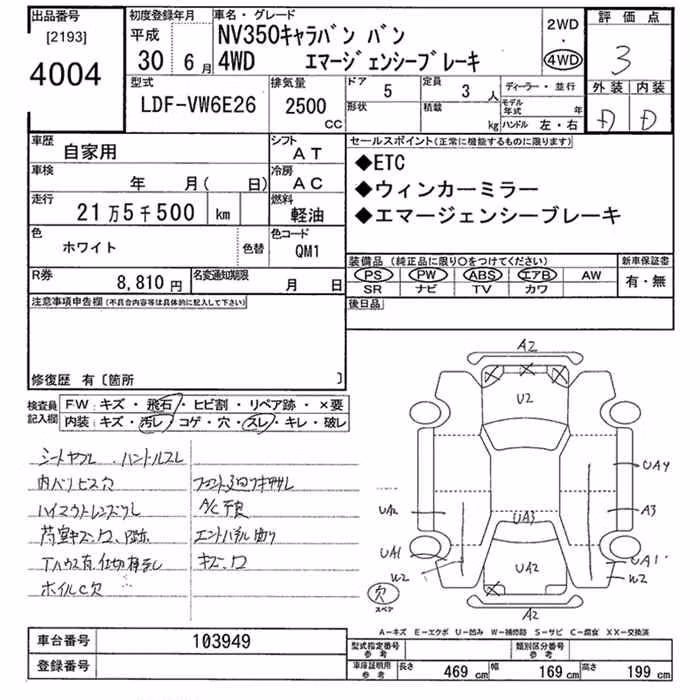 出品番号
[2193]
4004
初度登録年月
平成
30 6月
車名・グレード
NV350キャラバン バン
4WD エマージェンシーブレーキ
2WD
・
4WD
評価点
3
外装 内装
D D
型式
LDF-VW6E26
排気量
2500
CC
ドア
5
定員
3 人
形状
積載
kg
ディーラー・並行
モデル年式 年
ハンドル 左・右
車歴
自家用
シフト
AT
車検
年 月( 日)
冷房
AC
走行
21万5千500 km
燃料
軽油
色
ホワイト
色替
色コード
QM1
R券
8,810円
名変通知期限
月 日
セールスポイント(正常に機能するものに限ります)
◆ETC
◆ウィンカーミラー
◆エマージェンシーブレーキ
装備品(純正品に限り○をつけてください)
新車保証書
PS PW ABS エアB AW
SR ナビ TV カワ
有・無
後日品
注意事項申告欄(不具合内容等は具体的に記入して下さい)
修復歴 有〔箇所 〕
検査員記入欄
FW:キズ・飛石・ヒビ割・リペア跡・×要
内装:キズ・汚レ・コゲ・穴・スレ・キレ・破レ
シートヤブレ、ハンドルスレ
内ベリヒス穴
A/C不良
キズ、ワ
ホイルC欠
A2
U2
UA4
A3
UA3
UA2
UA1
W2
UA2
UA1
W2
A2
穴
スペア
A-キズ E-エクボ U-凹み W-補修跡 S-サビ C-腐食 XX-交換済
車台番号
103949
登録番号
型式指定番号
参考
類別区分番号
参考
車庫証明用
参考
長さ 469 cm
幅 169 cm
高さ 199 cm